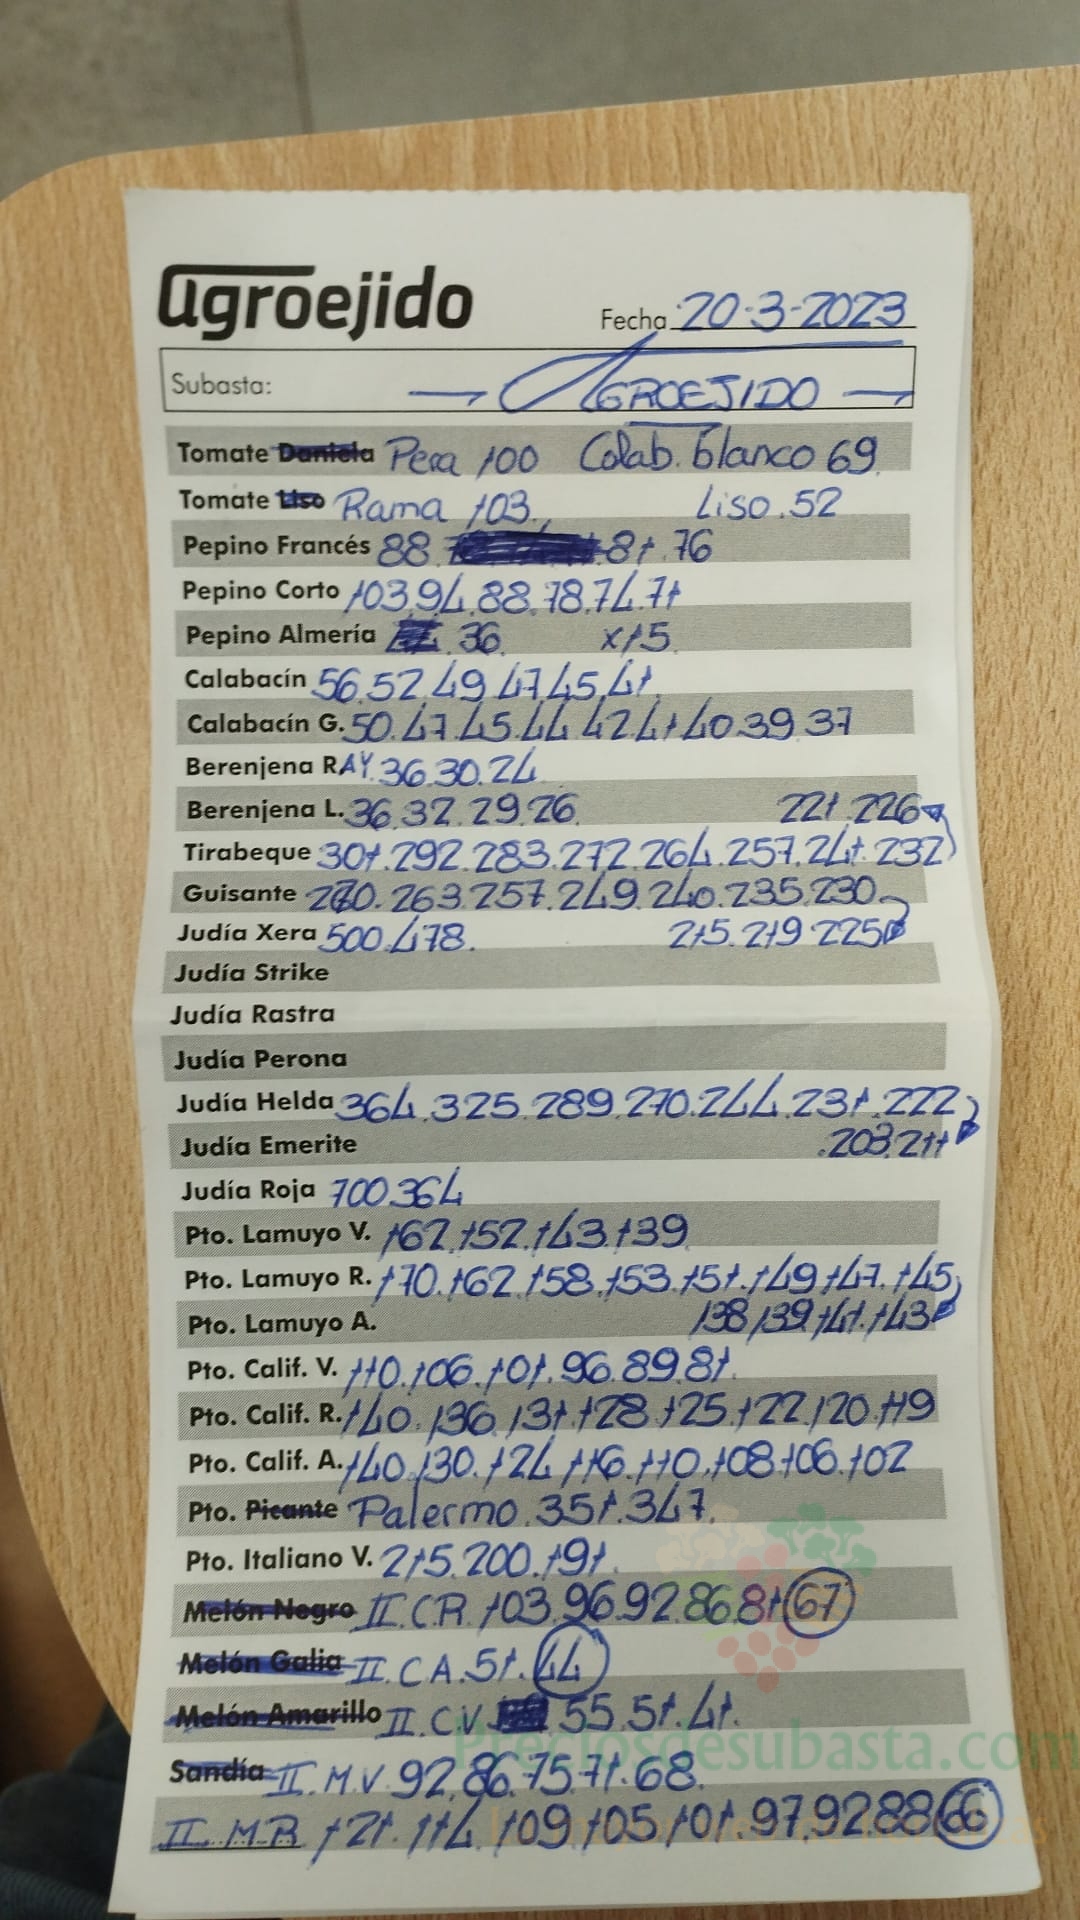 agroejido
Fecha 20-3-2023
Subasta: AGROEJIDO
Tomate Daniela Pera 100 Calab. blanco 69
Tomate Liso Rama 103. Liso.52
Pepino Francés 88. 81.76
Pepino Corto 103.94.88.78.74.71
Pepino Almería 36 x15
Calabacín 56.52.49.47.45.41.
Calabacín G. 50.47.45.44.42.41.40.39.37
Berenjena RAY. 36.30.24
Berenjena L. 36.32.29.26. 221.226
Tirabeque 301.292.283.272.264.257.241.232
Guisante 270.263.257.249.240.235.230
Judía Xera 500.478. 215.219.225
Judía Strike
Judía Rastra
Judía Perona
Judía Helda 364.325.289.270.244.231.222
Judía Emerite .203.211
Judía Roja 700.364
Pto. Lamuyo V. 162.152.143.139
Pto. Lamuyo R. 170.162.158.153.151.149.147.145
Pto. Lamuyo A. 138.139.141.143
Pto. Calif. V. 110.106.101.96.89.81.
Pto. Calif. R. 140.136.131.128.125.122.120.119
Pto. Calif. A. 140.130.124.116.110.108.106.102
Pto. Picante Palermo.351.347.
Pto. Italiano V. 215.200.191.
Melón Negro II.C.R. 103.96.92.86.81 67
Melón Galia II.C.A.51.44
Melón Amarillo II.C.V 55.51.41.
Preciosdesubasta.com
Sandía II.M.V.92.86.75.71.68.
II.M.R 121.114.109.105.101.97.92.88 66